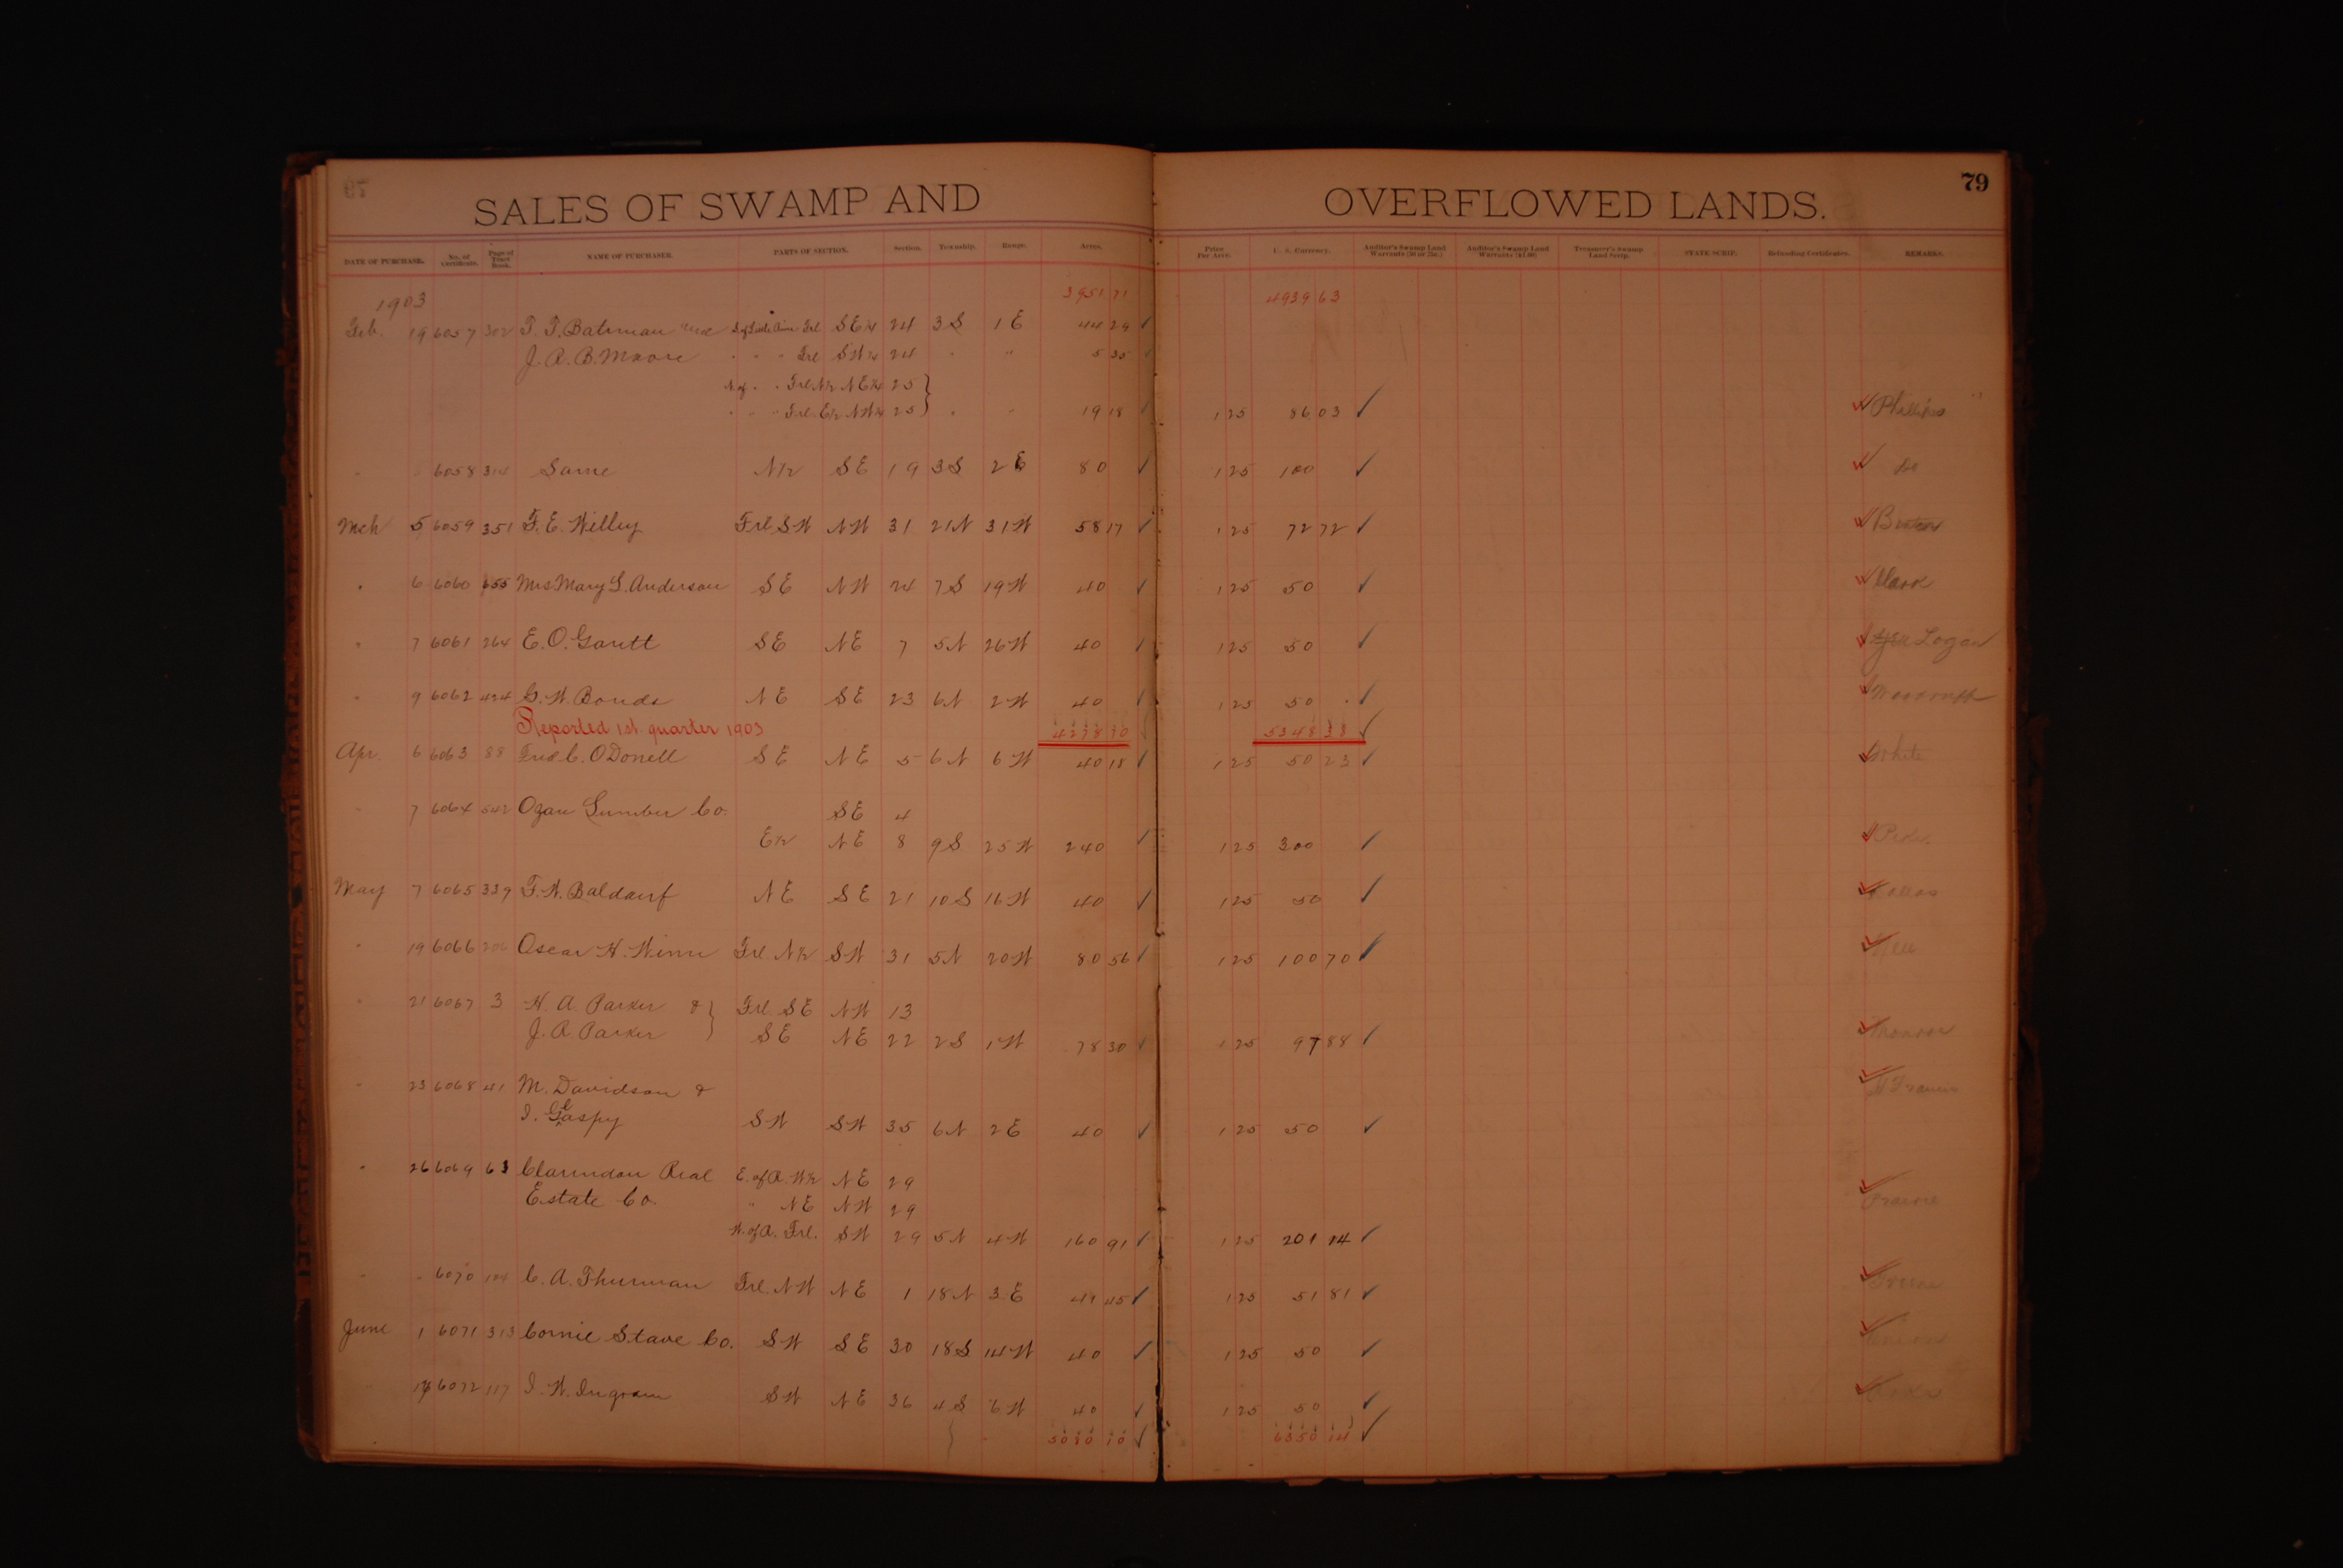 79
SALES OF SWAMP AND OVERFLOWED LANDS.
DATE OF PURCHASE. No. of Certificate. Page of Tract Book. NAME OF PURCHASER. PARTS OF SECTION. Section. Township. Range. Acres. Price Per Acre. U. S. Currency. Auditor's Swamp Land Warrants (50 or 75c.) Auditor's Swamp Land Warrants ($1.00) Treasurer's Swamp Land Scrip. STATE SCRIP. Refunding Certificates. REMARKS.
1903 3951 71 4939 63
Feb. 19 6057 302 T. T. Bateman and Frl SE 1/4 24 3S 1E 44 29 ✓
J. A. B. Moore " " " Frl SW 1/4 24 " " 5 35 ✓
N. of " " Frl N 1/2 NE 1/4 25 }
" " " Frl E 1/2 NW 1/4 25 } " " 19 18 1 25 86 03 ✓ ✓ Phillips
" " 6058 314 Same N 1/2 SE 19 3S 2E 80 ✓ 1 25 100 ✓ ✓ do
Mch 5 6059 351 F. E. Willey Frl SW NW 31 21N 31W 58 17 ✓ 1 25 72 72 ✓ ✓ Benton
" 6 6060 Mrs Mary L. Anderson SE NW 24 7S 19W 40 ✓ 1 25 50 ✓ ✓ Clark
" 7 6061 264 E. O. Gantt SE NE 7 5N 26W 40 ✓ 1 25 50 ✓ ✓ Logan
" 9 6062 424 G. W. Bonds NE SE 23 6N 2W 40 ✓ 1 25 50 ✓ ✓ Woodruff
Reported 1st quarter 1903 4278 70 5348 38 ✓
Apr. 6 6063 88 Fred C. ODonell SE NE 5 6N 6W 40 18 ✓ 1 25 50 23 ✓ ✓ White
" 7 6064 542 Ozan Lumber Co. SE 4
E 1/2 NE 8 9S 25W 240 ✓ 1 25 300 ✓ ✓ Pike
May 7 6065 339 F. W. Baldauf NE SE 21 10S 16W 40 ✓ 1 25 50 ✓ ✓ Dallas
" 19 6066 206 Oscar H. Winn Frl N 1/2 SW 31 5N 20W 80 56 ✓ 1 25 100 70 ✓ ✓
" 21 6067 3 H. A. Parker & } Frl. SE NW 13
J. A Parker } SE NE 22 2S 1W 78 30 ✓ 1 25 97 88 ✓ ✓ Monroe
" 23 6068 41 M. Davidson & ✓ St Francis
I. Gaspy SW SW 35 6N 2E 40 ✓ 1 25 50 ✓
" 26 6069 63 Clarendon Real E. of R. W 1/2 NE 29
Estate Co. " NE NW 29 ✓ Prairie
W. of R. Frl. SW 29 5N 4W 160 91 ✓ 1 25 201 14 ✓
" " 6070 104 C. A. Thurman Frl. NW NE 1 18N 3E 41 45 ✓ 1 25 51 81 ✓ ✓ Greene
June 1 6071 313 Cornie Stave Co. SW SE 30 18S 14W 40 ✓ 1 25 50 ✓ ✓ Union
6072 117 I. W. Ingram SW NE 36 4S 6W 40 ✓ 1 25 50 ✓ ✓
5080 10 ✓ 6350 14 ✓